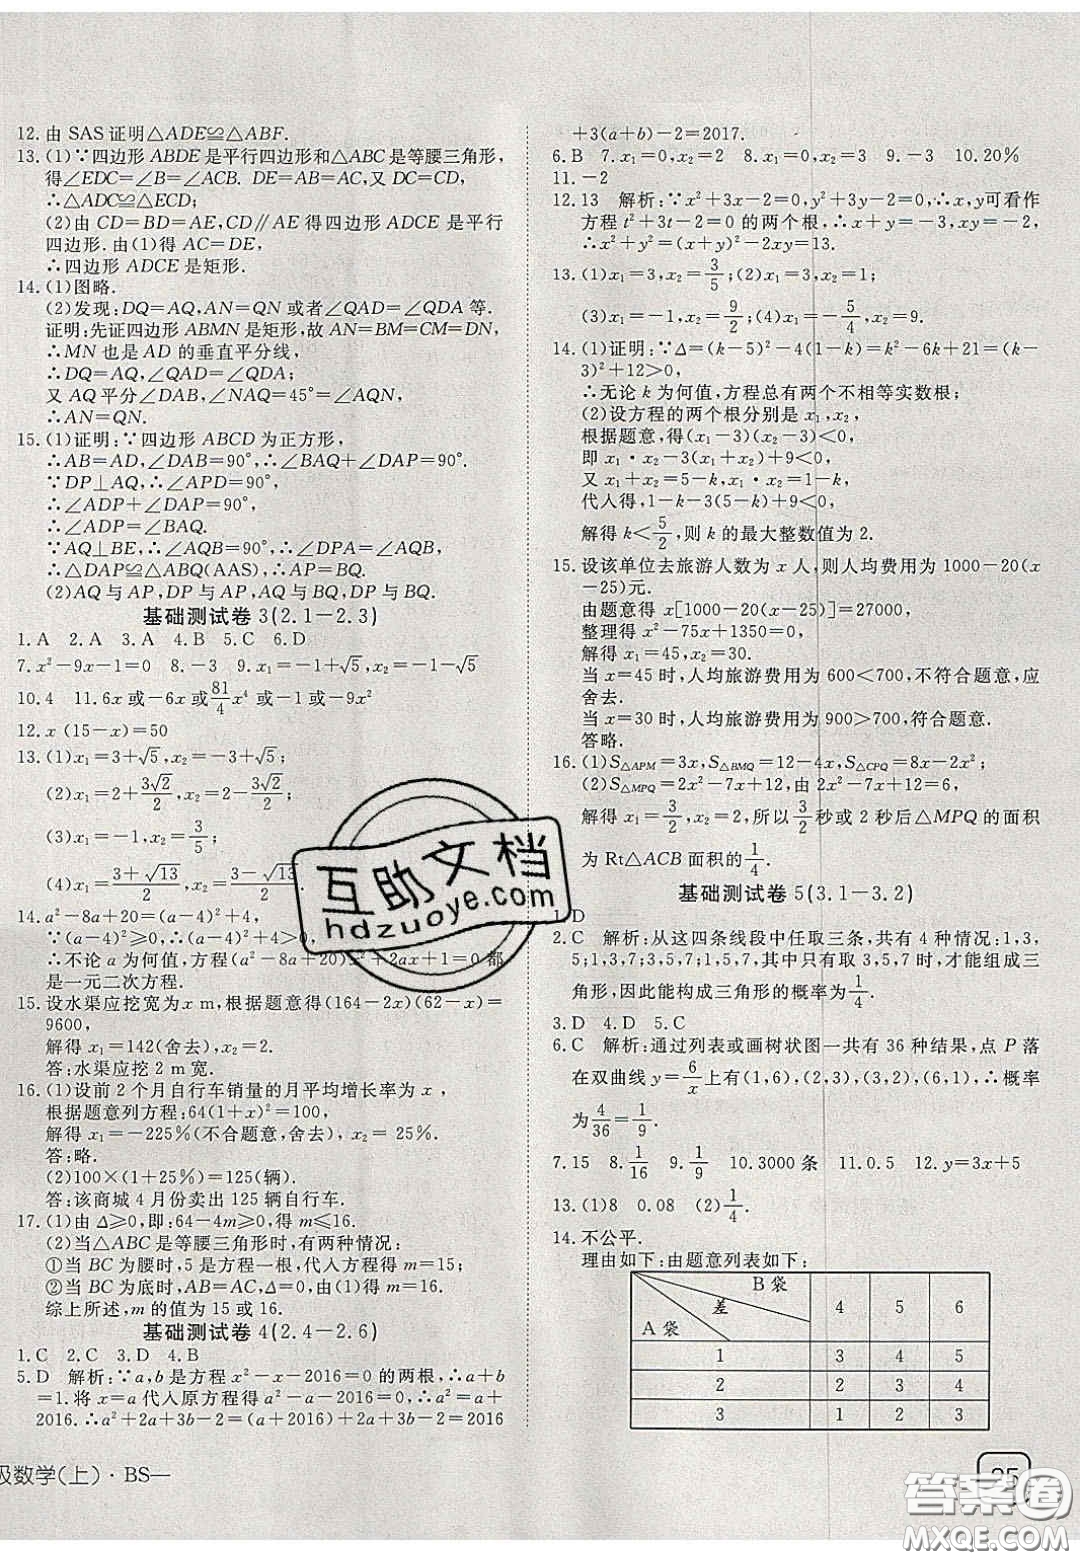 12.由 SAS 证明△ADE≌△ABF.
13.(1)∵四边形 ABDE 是平行四边形和△ABC 是等腰三角形,
得∠EDC=∠B=∠C. DE=AC,又 DC=DC,
∴△ADC≌△ECD;
(2)由 CD=BD=AE,CD∥AE 得四边形 ADCE 是平行
四边形.由(1)得 AC=DE,
∴四边形 ADCE 是矩形.
14.(1)图略.
(2)发现:DQ=AQ,AN=QN 或者∠QAD=∠QDA 等.
证明:先证四边形 ABMN 是矩形,故 AN=BM=CM=DN,
∴MN 也是 AD 的垂直平分线,
∴DQ=AQ,∠QAD=∠QDA;
又 AQ 平分∠DAB,∠NAQ=45°=∠AQN,
∴AN=QN.
15.(1)证明:∵四边形 ABCD 为正方形,
∴AB=AD,∠DAB=90°,∠BAQ+∠DAP=90°.
∵DP⊥AQ,∴∠APD=90°,
∴∠ADP+∠DAP=90°,
∴∠ADP=∠BAQ.
∵AQ⊥BE,∴∠AQB=90°,∴∠DPA=∠AQB,
∴△DAP≌△ABQ(AAS),∴AP=BQ.
(2)AQ 与 AP,DP 与 AP,AQ 与 BQ,DP 与 BQ.
基础测试卷 3(2.1-2.3)
1.A 2.A 3.A 4.B 5.C 6.D
7.x²-9x-1=0 8.-3 9.x₁=-1+√5,x₂=-1-√5
10.4 11.6x 或-6x 或 81/4 x⁴ 或-1 或-9x²
12.x (15-x)=50
13.(1)x₁=3+√5,x₂=-3+√5;
(2)x₁=2+3√2/2,x₂=2-3√2/2;
(3)x₁=-1,x₂=3/5;
(4)x₁=3+√13/2,x₂=3-√13/2.
14.a²-8a+20=(a-4)²+4,
∵(a-4)²≥0,∴(a-4)²+4>0,
∴不论 a 为何值,方程(a²-8a+20)x²+2ax+1=0 都
是一元二次方程.
15.设水渠应挖宽为x m,根据题意得(164-2x)(62-x)=
9600,
解得 x₁=142(舍去),x₂=2.
答:水渠应挖 2 m 宽.
16.(1)设前 2 个月自行车销量的月平均增长率为 x ,
根据题意列方程:64(1+x)²=100,
解得 x₁=-225%(不合题意,舍去),x₂= 25%.
答:略.
(2)100×(1+25%)=125(辆).
答:该商城 4 月份卖出 125 辆自行车.
17.(1)由 Δ≥0,即:64-4m≥0,得 m≤16.
(2)当△ABC 是等腰三角形时,有两种情况:
①当 BC 为腰时,5 是方程一根,代入方程得 m=15.
②当 BC 为底时,AB=AC,Δ=0,得 m=16.
综上所述,m 的值为 15 或 16.
基础测试卷 4(2.4-2.6)
1.C 2.C 3.D 4.B
5.D 解析:∵a,b 是方程 x²-x-2016=0 的两根,∴a+b
=1.将 x=a 代入原方程得 a²-a-2016=0,∴a²=a+
2016.∴a²+2a+3b-2=a+2016+2a+3b-2=2016
+3(a+b)-2=2017.
6.B 7.x₁=0,x₂=2 8.x₁=0,x₂=3 9.-3 10.20%
11.-2
12.13 解析:∵x²+3x-2=0,y²+3y-2=0,∴x,y可看作
方程 t²+3t-2=0 的两个根,∴x+y=-3,xy=-2,
∴x²+y²=(x+y)²-2xy=13.
13.(1)x₁=3,x₂=3/5;(2)x₁=3,x₂=1;
(3)x₁=-1,x₂=9/2;(4)x₁=-5/4,x₂=9.
14.(1)证明:∵Δ=(k-5)²-4(1-k)=k²-6k+21=(k-
3)²+12>0,
∴无论 k 为何值,方程总有两个不相等实数根;
(2)设方程的两个根分别是 x₁,x₂,
根据题意,得(x₁-3)(x₂-3)<0,
即 x₁·x₂-3(x₁+x₂)+9<0,
又 x₁+x₂=5-k,x₁·x₂=1-k,
代人得,1-k-3(5-k)+9<0,
解得 k<5/2,则 k 的最大整数值为 2.
15.设该单位去旅游人数为 x 人,则人均费用为 1000-20(x
-25)元.
由题意得 x[1000-20(x-25)]=27000,
整理得 x²-75x+1350=0,
解得 x₁=45,x₂=30.
当 x=45 时,人均旅游费用为 600<700,不符合题意,应
舍去.
当 x=30 时,人均旅游费用为 900>700,符合题意.
答略.
16.(1)S△APM=3x,S△BMQ=12-4x,S△CPQ=8x-2x²;
(2)S△MPQ=2x²-7x+12,由 2x²-7x+12=6,
解得 x₁=3/2,x₂=2,所以 3/2 秒或 2 秒后△MPQ 的面积
为 Rt△ACB 面积的 1/4.
基础测试卷 5(3.1-3.2)
1.D
2.C 解析:从这四条线段中任取三条,共有 4 种情况:1,3,
5;1,3,7;1,5,7;3,5,7.其中只有取 3,5,7 时,才能组成三
角形,因此能构成三角形的概率为 1/4.
3.D 4.D 5.C
6.C 解析:通过列表或画树状图一共有 36 种结果,点 P 落
在双曲线 y=6/x上有(1,6),(2,3),(3,2),(6,1),∴概率
为 4/36=1/9.
7.15 8.1/16 9.1/9 10.3000 条 11.0.5 12.y=3x+5
13.(1)8 0.08 (2)1/4.
14.不公平.
理由如下:由题意列表如下:
B 袋 差 A 袋 4 5 6
1 3 4 5
2 2 3 4
3 1 2 3
级数学(上)·BS—
25
互助文档
hdzuoye.com
答案圈
MXQE.COM